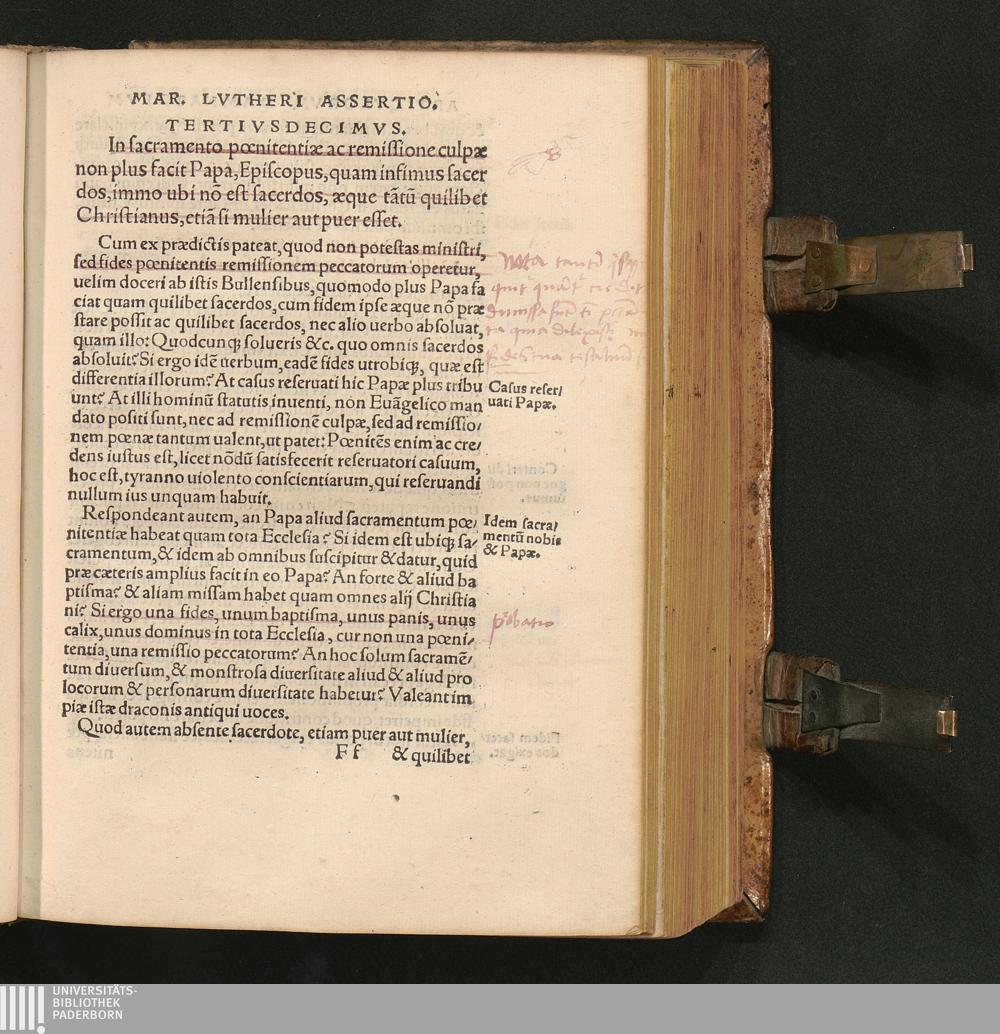 MAR. LVTHERI ASSERTIO.
TERTIVSDECIMVS.
In sacramento pœnitentiæ ac remissione culpæ
non plus facit Papa, Episcopus, quam infimus sacer
dos, immo ubi nō est sacerdos, æque tātū quilibet
Christianus, etiā si mulier aut puer esset.
Cum ex prædictis pateat, quod non potestas ministri,
sed fides pœnitentis remissionem peccatorum operetur,
uelim doceri ab istis Bullensibus, quomodo plus Papa fa
ciat quam quilibet sacerdos, cum fidem ipse æque nō præ
stare possit ac quilibet sacerdos, nec alio uerbo absoluat,
quam illo: Quodcunq; solueris &c. quo omnis sacerdos
absoluit? Si ergo idē uerbum, eadē fides utrobiq;, quæ est
differentia illorum? At casus reseruati hic Papæ plus tribu
unt? At illi hominū statutis inuenti, non Euāgelico man
dato positi sunt, nec ad remissionē culpæ, sed ad remissio/
nem pœnæ tantum ualent, ut patet: Pœnitēs enim ac cre/
dens iustus est, licet nōdū satisfecerit reseruatori casuum,
hoc est, tyranno uiolento conscientiarum, qui reseruandi
nullum ius unquam habuit.
Casus reser/
uati Papæ.
Respondeant autem, an Papa aliud sacramentum pœ/
nitentiæ habeat quam tota Ecclesia? Si idem est ubiq; sa/
cramentum, & idem ab omnibus suscipitur & datur, quid
præ cæteris amplius facit in eo Papa? An forte & aliud ba
ptisma? & aliam missam habet quam omnes alij Christia
ni? Si ergo una fides, unum baptisma, unus panis, unus
calix, unus dominus in tota Ecclesia, cur non una pœni/
tentia, una remissio peccatorum? An hoc solum sacramē/
tum diuersum, & monstrosa diuersitate aliud & aliud pro
locorum & personarum diuersitate habetur? Valeant im
piæ istæ draconis antiqui uoces.
Idem sacra/
mentū nobis
& Papæ.
Quod autem absente sacerdote, etiam puer aut mulier,
F f & quilibet
UNIVERSITÄTS-
BIBLIOTHEK
PADERBORN